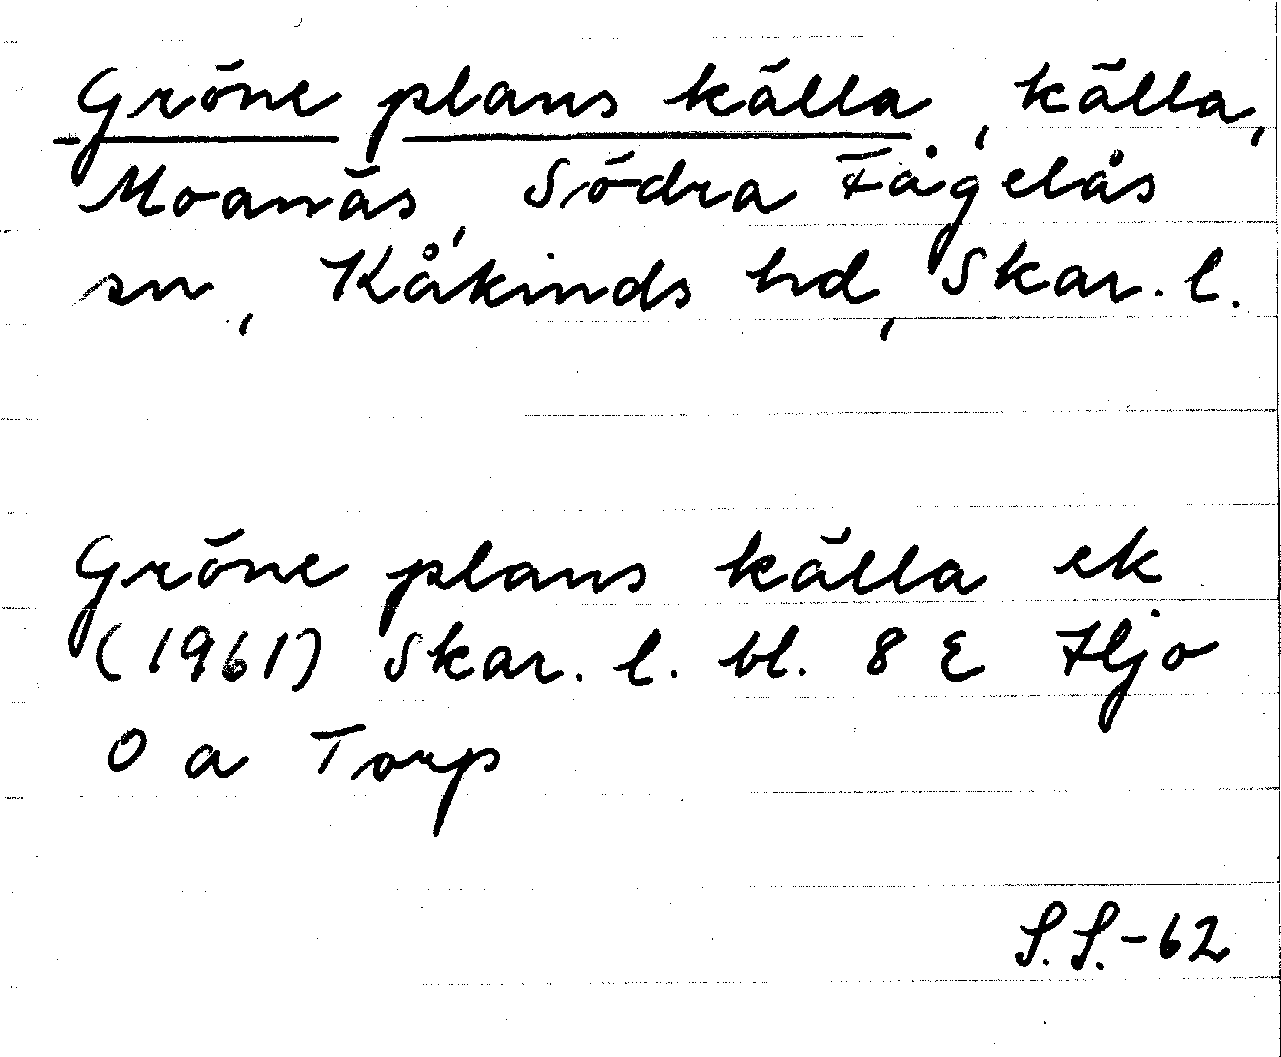 Gröne plans källa, källa,
Moanäs, Södra Fågelås
sn, Kåkinds hd, Skar. l.
Gröne plans källa ek
(1961) Skar. l. bl. 8 E Hjo
O a Torp
S.S.-62